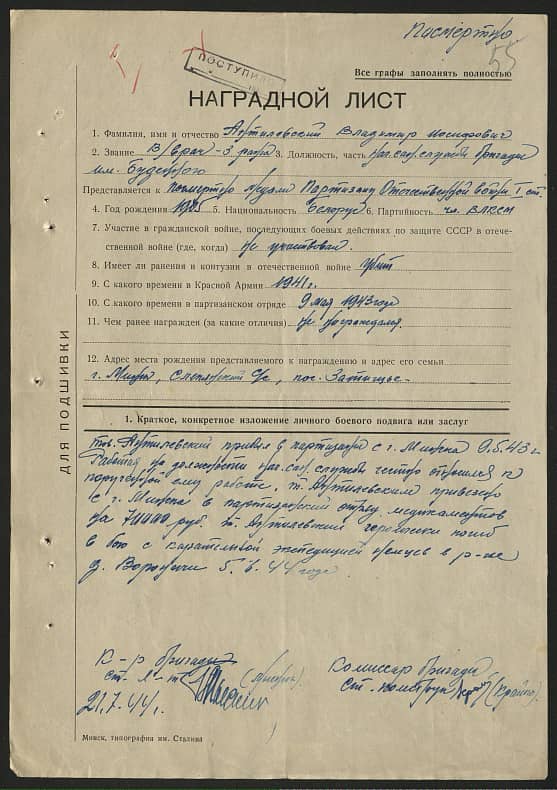 Посмертно
55
ПОСТУПИЛО
Все графы заполнять полностью
НАГРАДНОЙ ЛИСТ
1. Фамилия, имя и отчество Артишевский Владимир Иосифович
2. Звание В/врач - 3 ранга 3. Должность, часть нач. сан. службы бригады
им. Буденого
Представляется к посмертно медали Партизану Отечественной войны I ст.
4. Год рождения 5. Национальность Белорус 6. Партийность чл. ВЛКСМ
7. Участие в гражданской войне, последующих боевых действиях по защите СССР в отече-
ственной войне (где, когда) не участвовал.
8. Имеет ли ранения и контузии в отечественной войне убит
9. С какого времени в Красной Армии 1941 г.
10. С какого времени в партизанском отряде 9 мая 1943 года
11. Чем ранее награжден (за какие отличия) не награждался.
12. Адрес места рождения представляемого к награждению и адрес его семьи
г. Минск, с/с, пос. Затишье
ДЛЯ ПОДШИВКИ
1. Краткое, конкретное изложение личного боевого подвига или заслуг
тов. Артишевский прибыл в партизаны с г. Минска 9.5.43 г.
Работая на должности нач. сан. службы честно относился к
порученой ему работе. т. Артишевским привезено
с г. Минска в партизанский отряд медикаментов
на руб. т. Артишевский геройски погиб
в бою с карательной экспедицией немцев в р-не
д. Вороничи 5.6.44 года
К-р бригады
ст. л-т
21.7.44 г.
Комиссар бригады
ст. политрук
Минск, типография им. Сталина